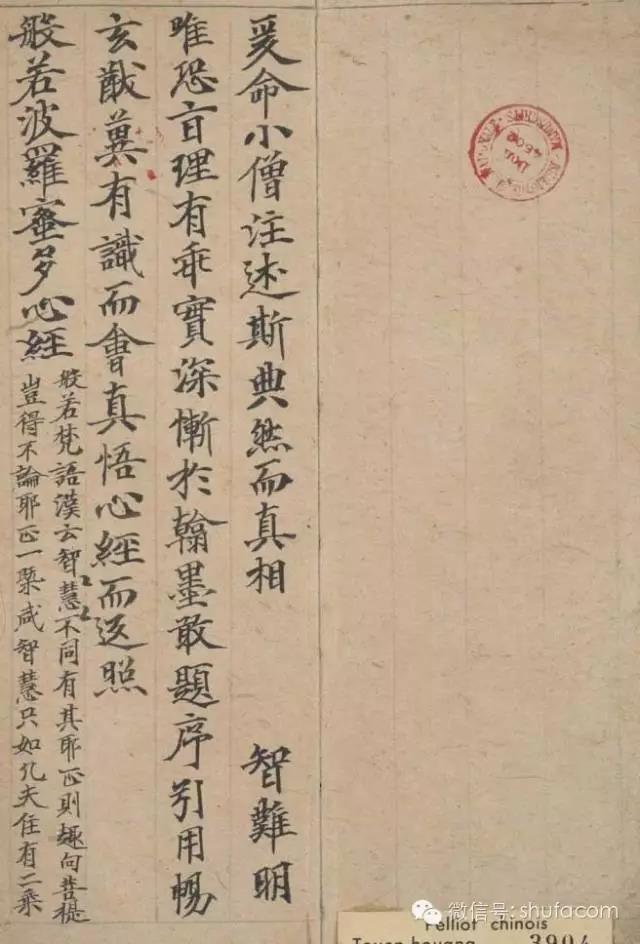 爰命小僧注述斯典然而真相 智難明
唯恐盲理有乖實深慚於翰墨敢題序引用暢
玄猷冀有識而會真悟心經而返照
般若波羅蜜多心經
般若梵語漢云智慧〻不同有其耶正則趣向菩提
豈得不論耶正一槩咸智慧只如凡夫住有二乘
微信号: shufacom
Pelliot chinois
Touen-houang
3904